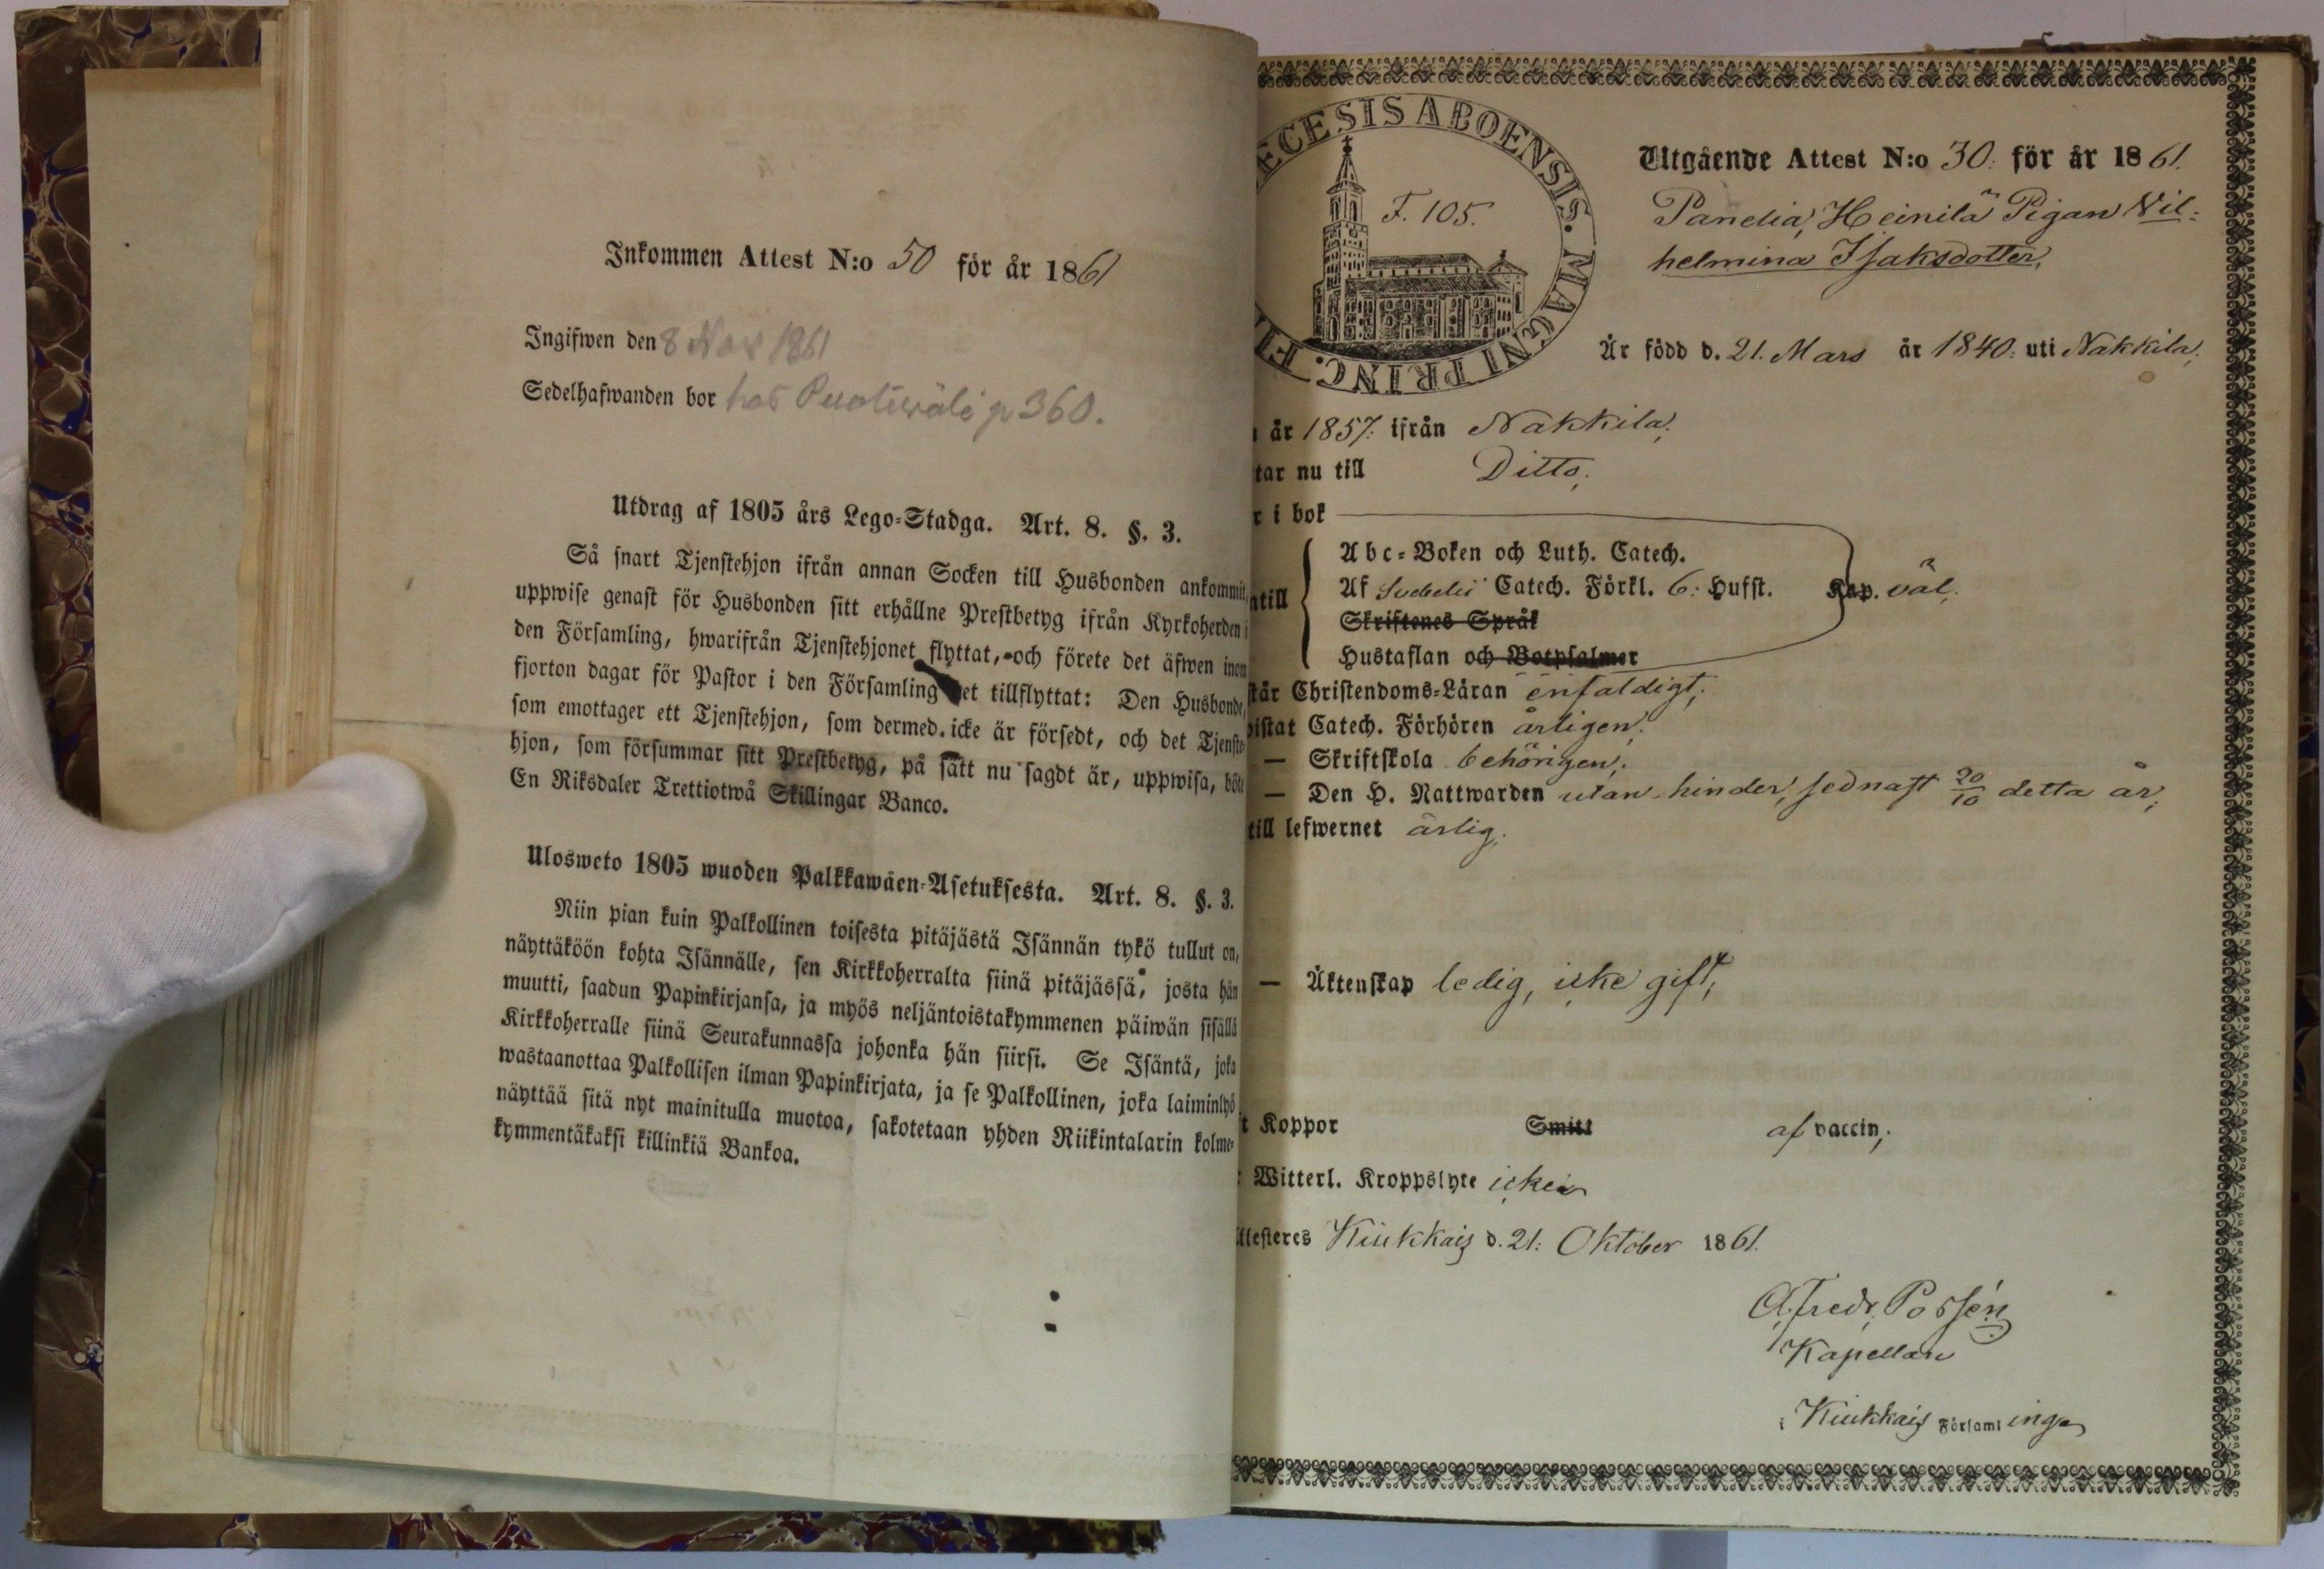 Inkommen Attest N:o 50 för år 1861
Ingifwen den 8 Nov 1861
Sedelhafwanden bor hos Puotiwäli p 360.
Utdrag af 1805 års Lego-Stadga. Art. 8. §. 3.
Så snart Tjenstehjon ifrån annan Socken till Husbonden ankommit,
uppwise genast för Husbonden sitt erhållne Prestbetyg ifrån Kyrkoherden i
den Församling, hwarifrån Tjenstehjonet flyttat, och förete det äfwen inom
fjorton dagar för Pastor i den Församling det tillflyttat: Den Husbonde,
som emottager ett Tjenstehjon, som dermed icke är försedt, och det Tjenste-
hjon, som försummar sitt Prestbetyg, på sätt nu sagdt är, uppwisa, böte
En Riksdaler Trettiotwå Skillingar Banco.
Ulosweto 1805 wuoden Palkkawäen-Asetuksesta. Art. 8. §. 3.
Niin pian kuin Palkollinen toisesta pitäjästä Isännän tykö tullut on,
näyttäköön kohta Isännälle, sen Kirkkoherralta siinä pitäjässä, josta hän
muutti, saadun Papinkirjansa, ja myös neljäntoistakymmenen päiwän sisällä
Kirkkoherralle siinä Seurakunnassa johonka hän siirsi. Se Isäntä, joka
wastaanottaa Palkollisen ilman Papinkirjata, ja se Palkollinen, joka laiminlyö
näyttää sitä nyt mainitulla muotoa, sakotetaan yhden Riikintalarin kolme-
kymmentäkaksi killinkiä Bankoa.
ECESIS ABOENSIS. MAGNI PRINC. FI
F. 105.
Utgående Attest N:o 30. för år 1861.
Panelia, Heinilä Pigan Wil-
helmina Isaksdotter,
Är född d. 21. Mars år 1840. uti Nakkila;
år 1857. ifrån Nakkila;
tar nu till Ditto;
r i bok
ntill
Abc-Boken och Luth. Catech.
Af Svebelii Catech. Förkl. 6: Hufst. Kap. väl;
Skriftenes Språk
Hustaflan och Botpsalmer
står Christendoms-Läran enfaldigt;
vistat Catech. Förhören årligen;
— Skriftskola behörigen;
— Den H. Nattwarden utan hinder, sednast 20/10 detta år;
till lefwernet ärlig;
— Äktenskap ledig, icke gift;
t Koppor Smitt af vaccin;
Witterl. Kroppslyte icke;
ttesteres Kiukkais d. 21: Oktober 1861.
A. Fredr. Possén
Kapellan
i Kiukkais Församlinga